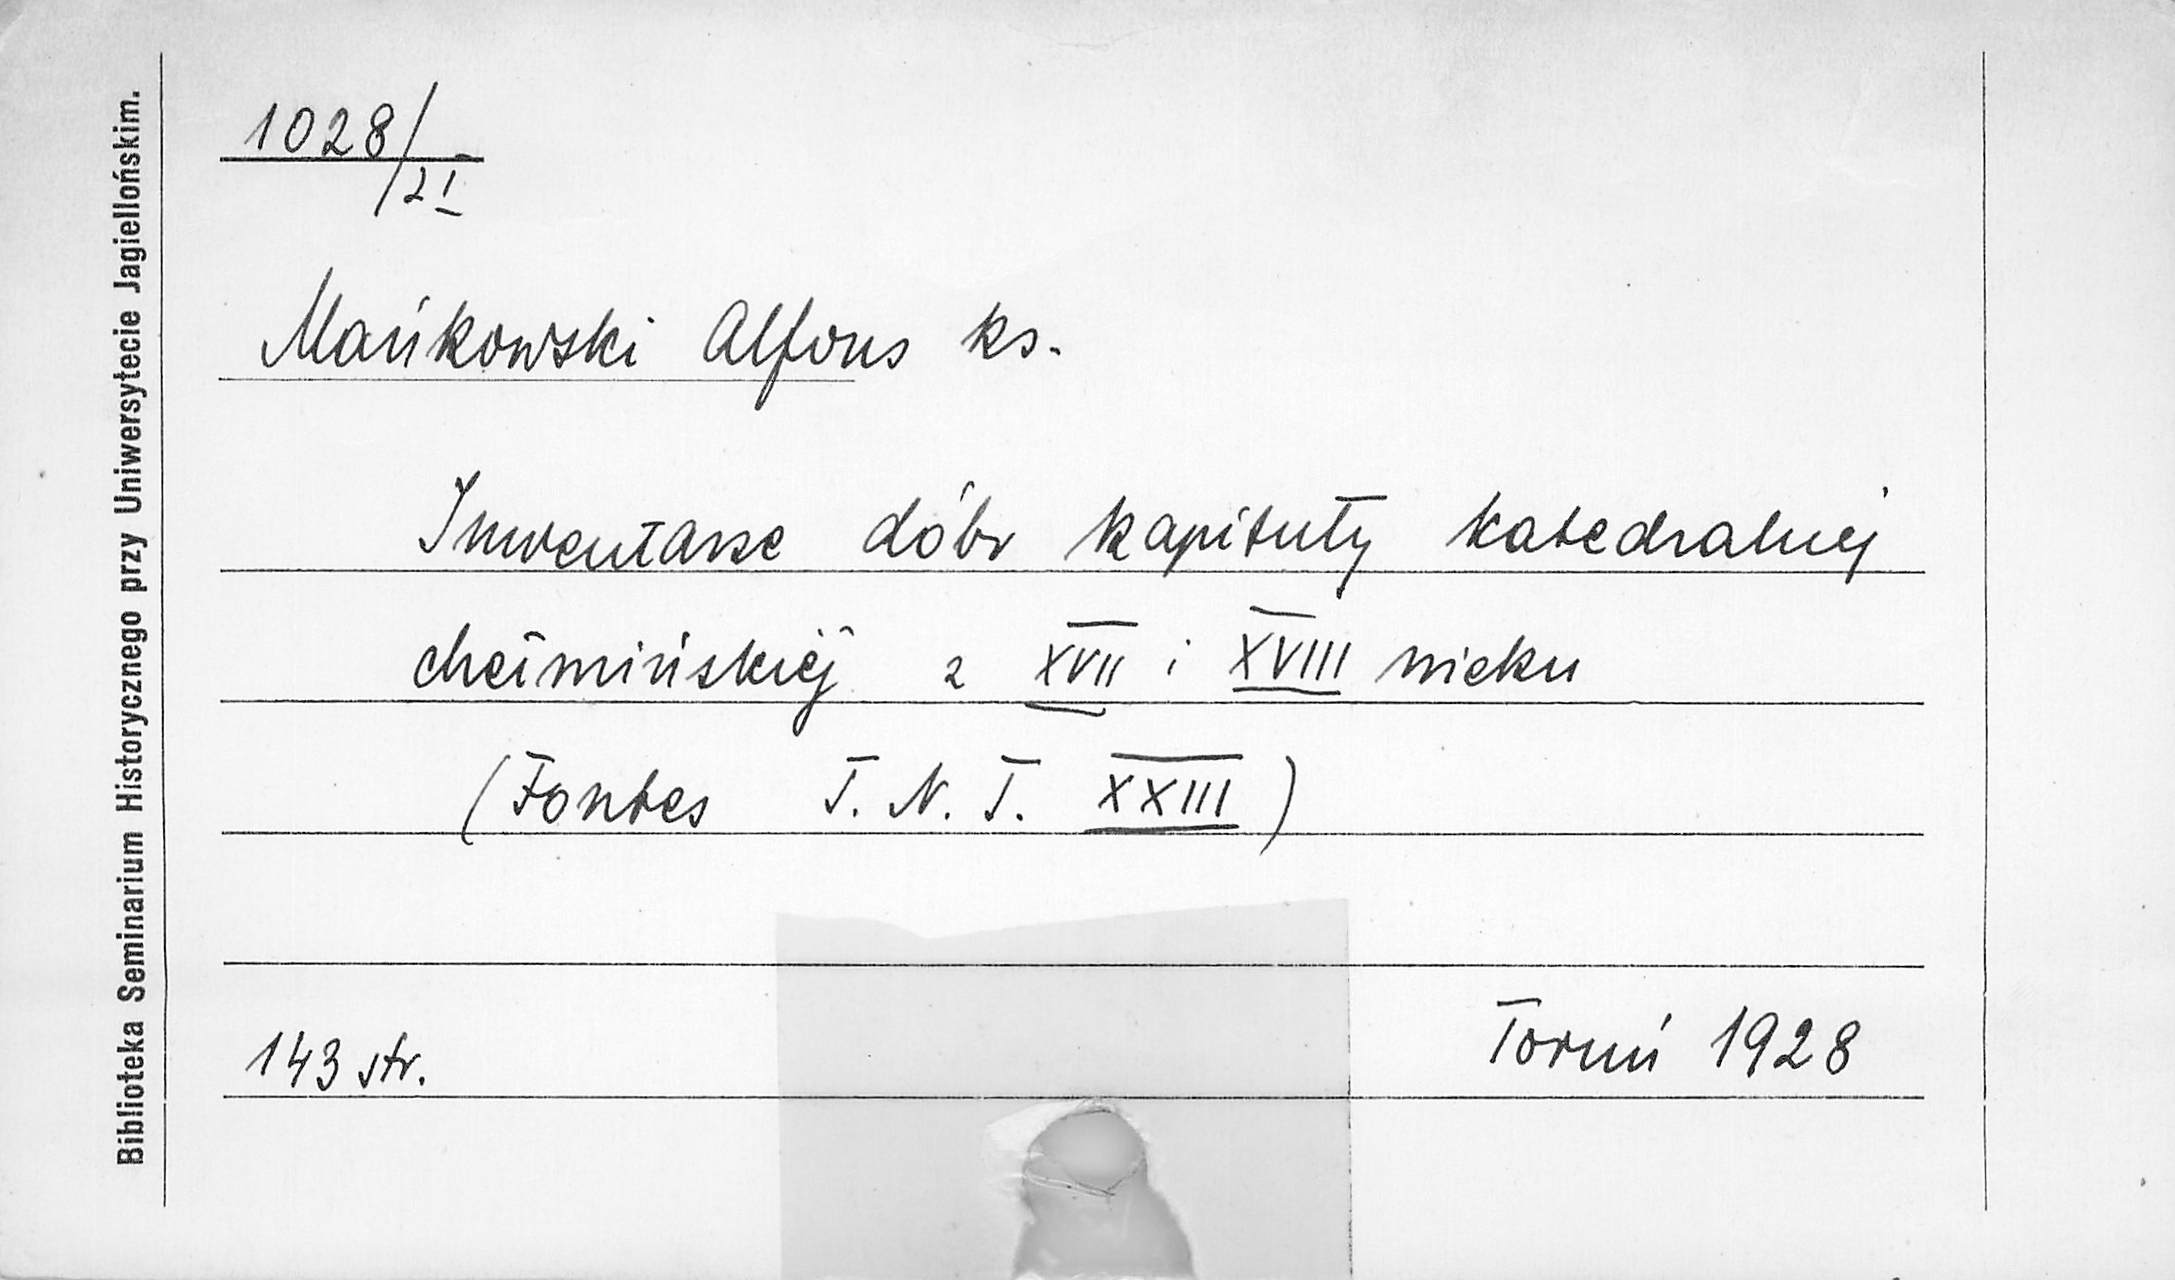 Biblioteka Seminarium Historycznego przy Uniwersytecie Jagiellońskim.
1028/2I
Mańkowski Alfons ks.
Inwentarze dóbr kapituły katedralnej
chełmińskiej z XVII i XVIII wieku
(Fontes T. N. T. XXIII)
143 str.
Toruń 1928